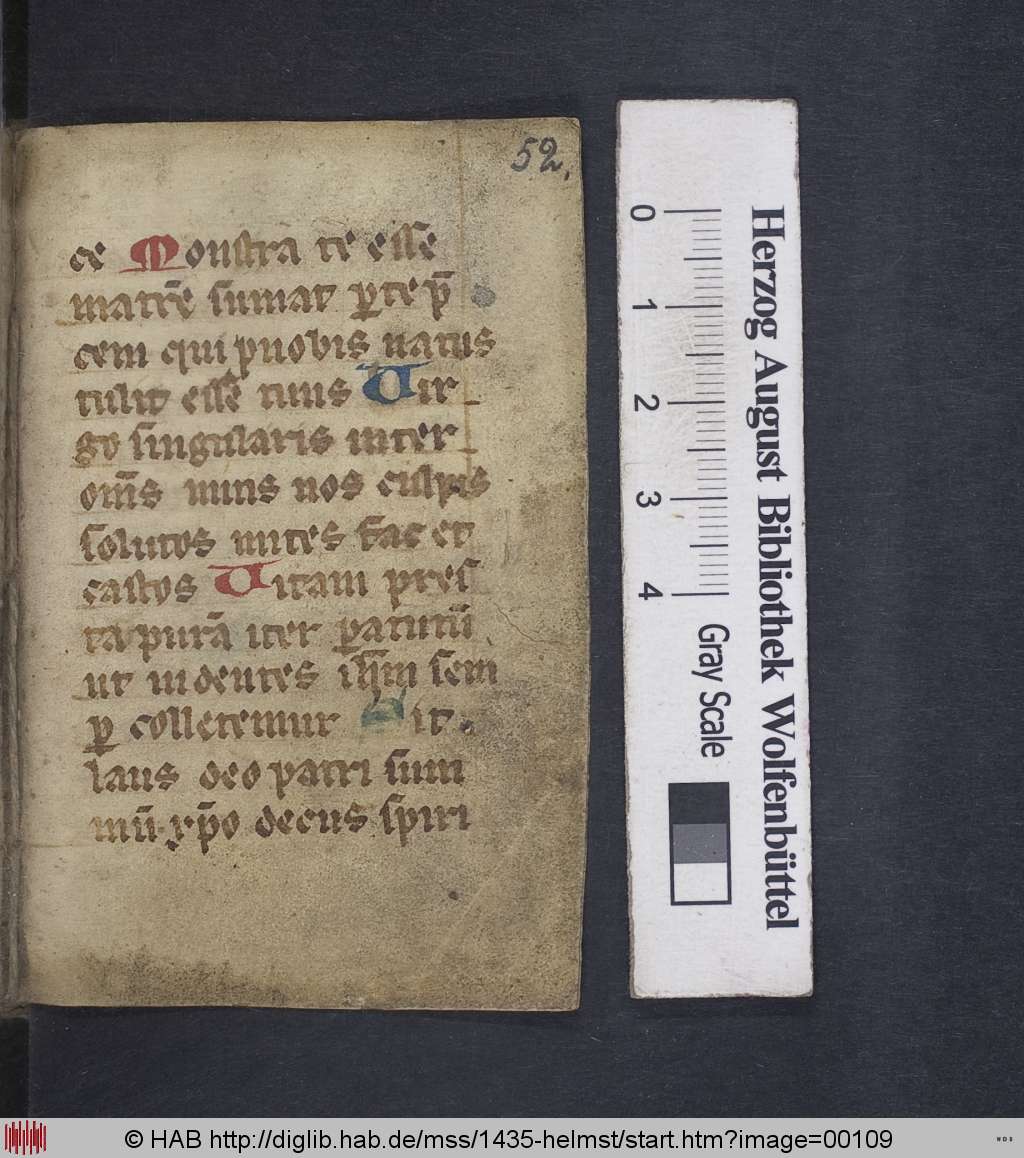 52.
ce Monstra te esse
matrē sumat ꝑ te p̄
cem qui pnobis natus
tulit esse tuus Uir
go singularis inter
om̄s mitis nos culpis
solutos mites fac et
castos Uitam pres
ta purā iter ꝑa tutū
ut uidentes ih̄m sem
ꝑ colletemur Sit
laus deo patri sum
mū xp̄o decus spiri
0
1
2
3
4
Gray Scale
Herzog August Bibliothek Wolfenbüttel
© HAB http://diglib.hab.de/mss/1435-helmst/start.htm?image=00109